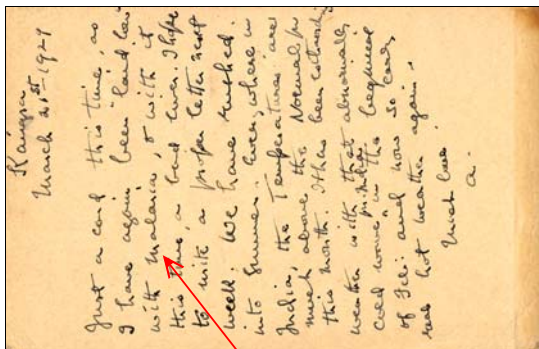 Kangra
March 21st - 1929
Just a card this time, as
I have again been laid low
with Malaria, & with it
this time, a bad liver. I hope
to write a proper letter next
week. We have rushed
into Summer. Everywhere in
India, the Temperatures are
much above the Normal for
this month. It has been
weather with that abnormally
cold wave in the beginning
of Feb: and now so early
hot weather again.
Much love
a.